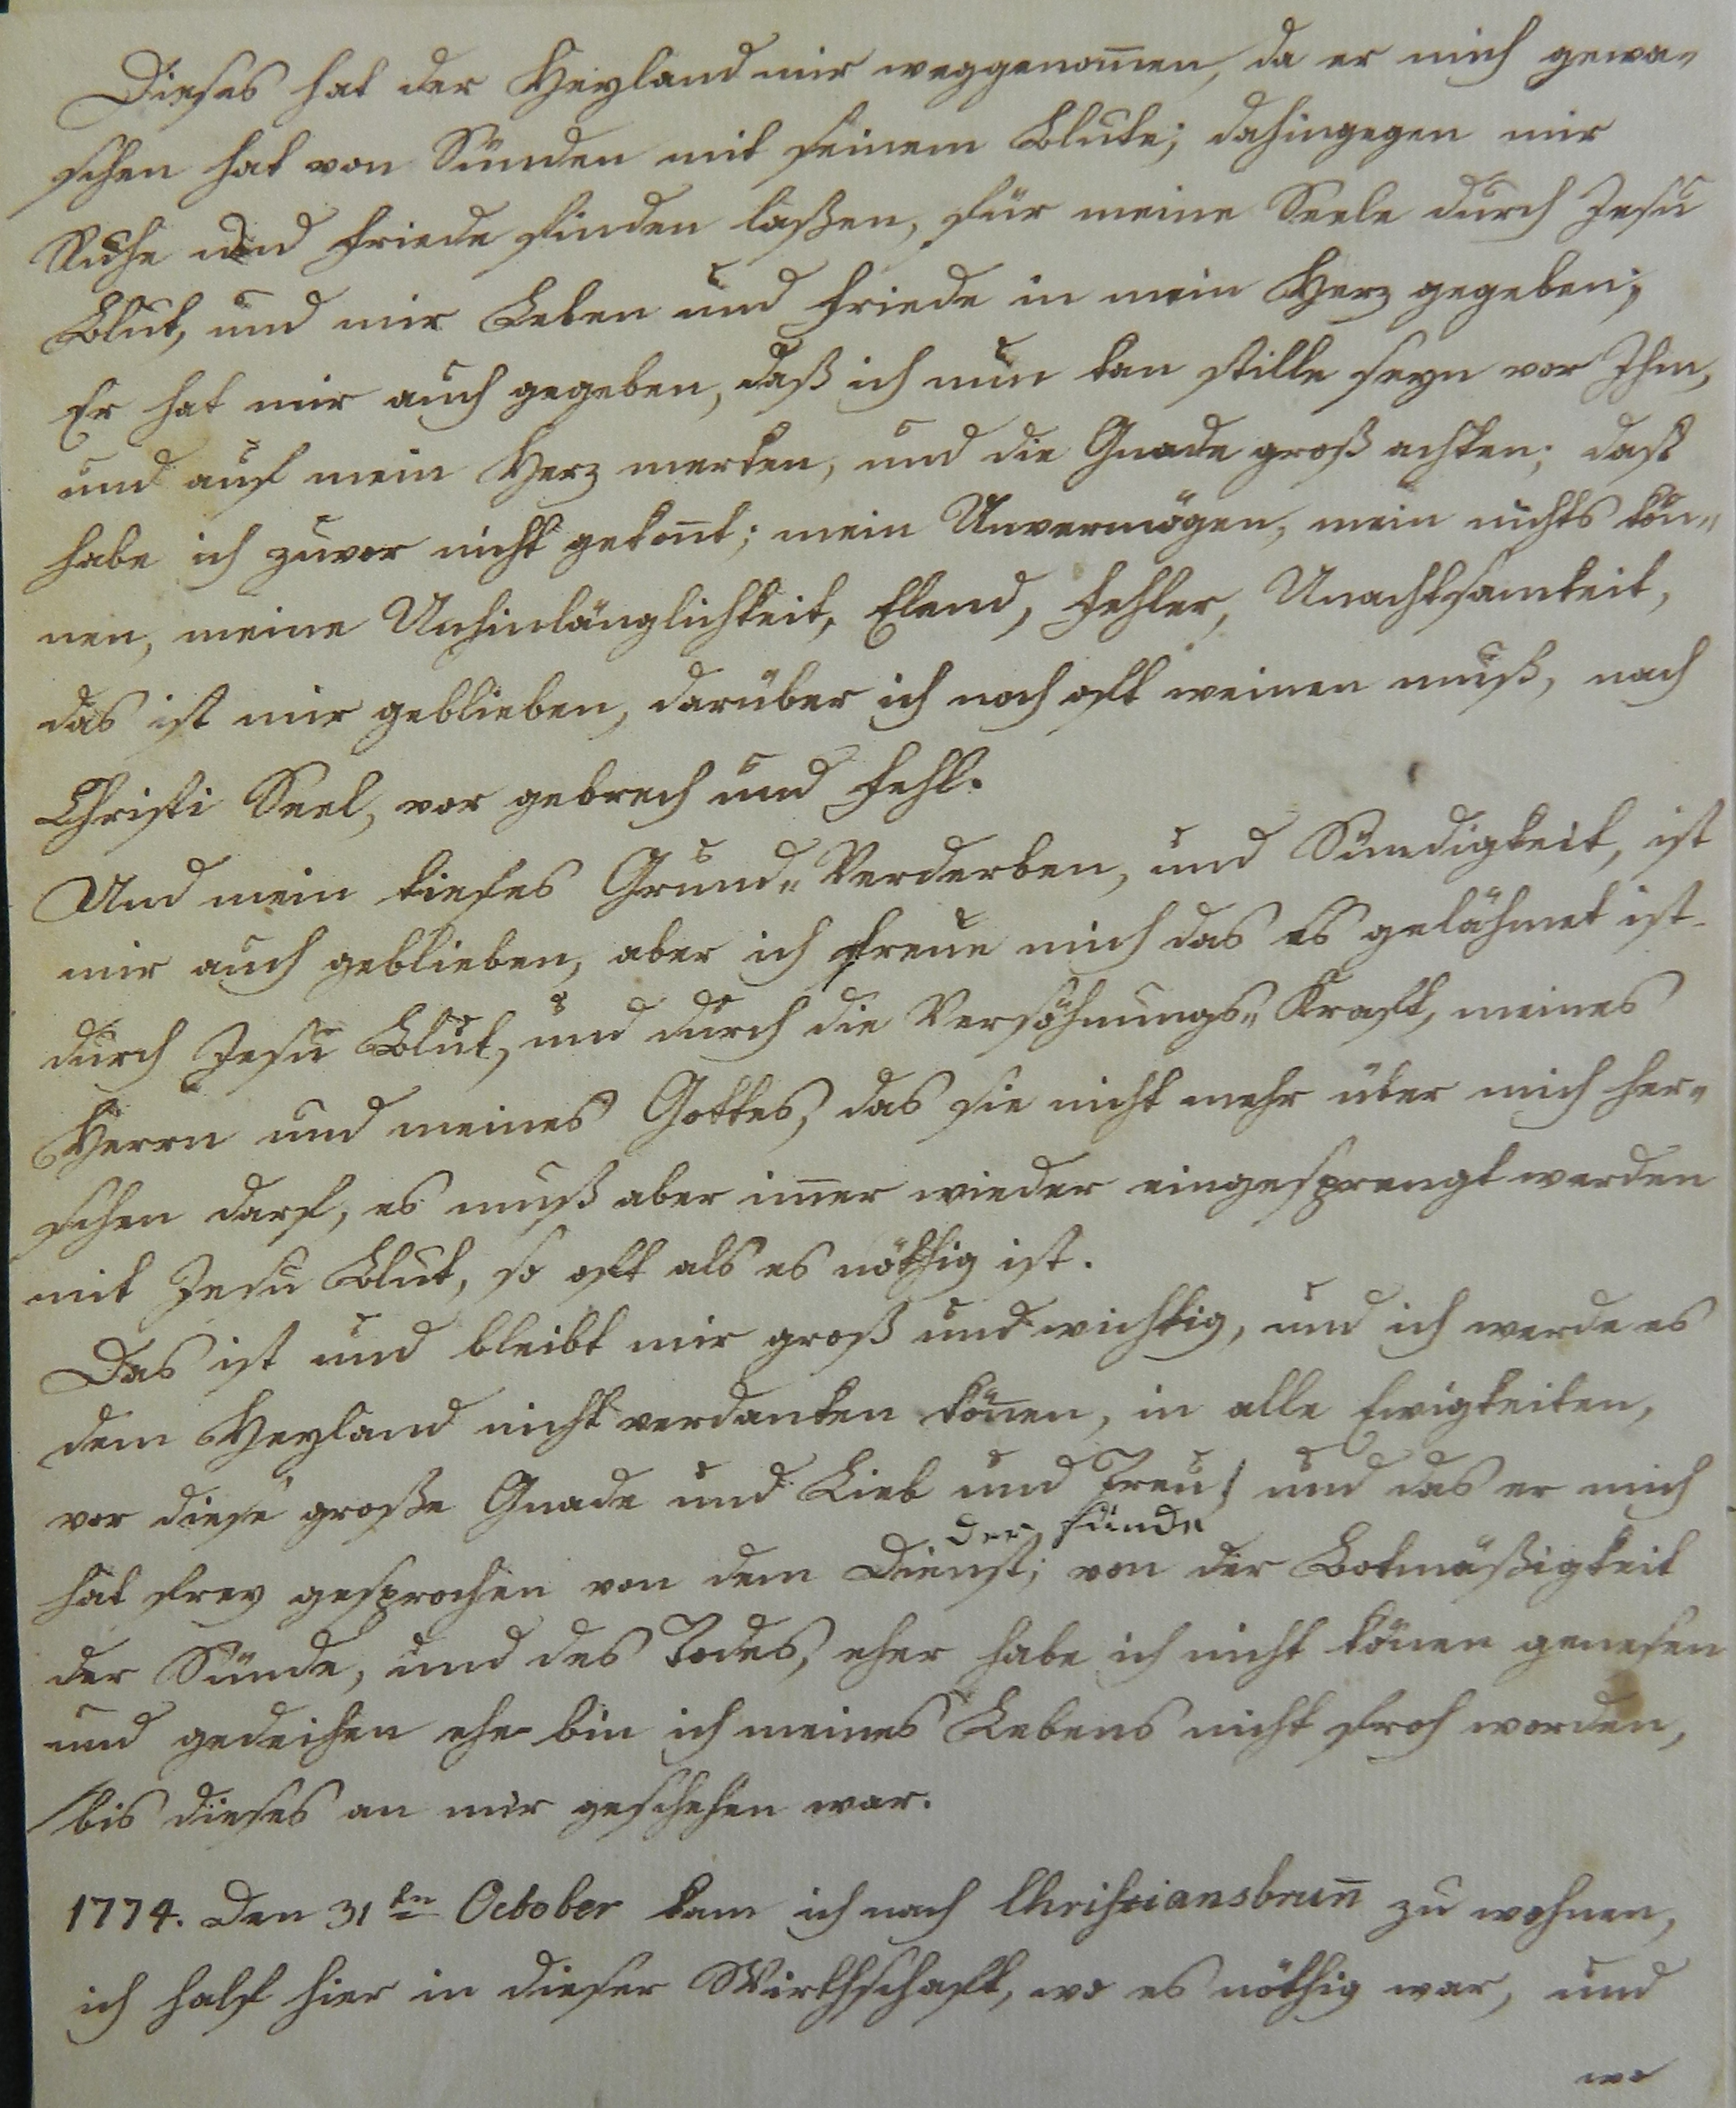 Dieses hat der Heyland mir weggenom̄en, da er mich gewa-
schen hat von Sünden mit seinem Blute; dahingegen mir
Ruhe und Friede finden laßen, für meine Seele durch Jesu
Blut, und mir Leben und Friede in mein Herz gegeben;
Er hat mir auch gegeben, daß ich nun kan stille seyn vor Ihm,
und auf mein Herz merken, und die Gnade groß achten; daß
habe ich zuvor nicht gekon̄t; mein Unvermögen, mein nichts kön-
nen, meine Unhinlänglichkeit, Elend, Fehler, Unachtsamkeit,
das ist mir geblieben, darüber ich noch oft weinen muß, nach
Christi Seel, vor gebrech und Fehl.
Und mein tiefes Grund-Verderben, und Sündigkeit, ist
mir auch geblieben, aber ich freue mich das es gelähmet ist
durch Jesu Blut, und durch die Versöhnungs-Kraft, meines
Herrn und meines Gottes, das sie nicht mehr über mich her-
schen darf, es muß aber im̄er wieder eingesprengt werden
mit Jesu Blut, so oft als es nöthig ist.
Das ist und bleibt mir groß und wichtig, und ich werde es
dem Heyland nicht verdanken kön̄en, in alle Ewigkeiten,
vor diese große Gnade und Lieb und Treu! und das er mich
der Sünde
hat frey gesprochen von dem Dienst; von der Botmäßigkeit
der Sünde, und des Todes, eher habe ich nicht kön̄en genesen
und gedeihen ehe bin ich meines Lebens nicht froh worden,
bis dieses an mir geschehen war.
1774. Den 31ten October kam ich nach Christiansbrun̄ zu wohnen,
ich half hier in dieser Wirthschaft, wo es nöthig war, und
wo